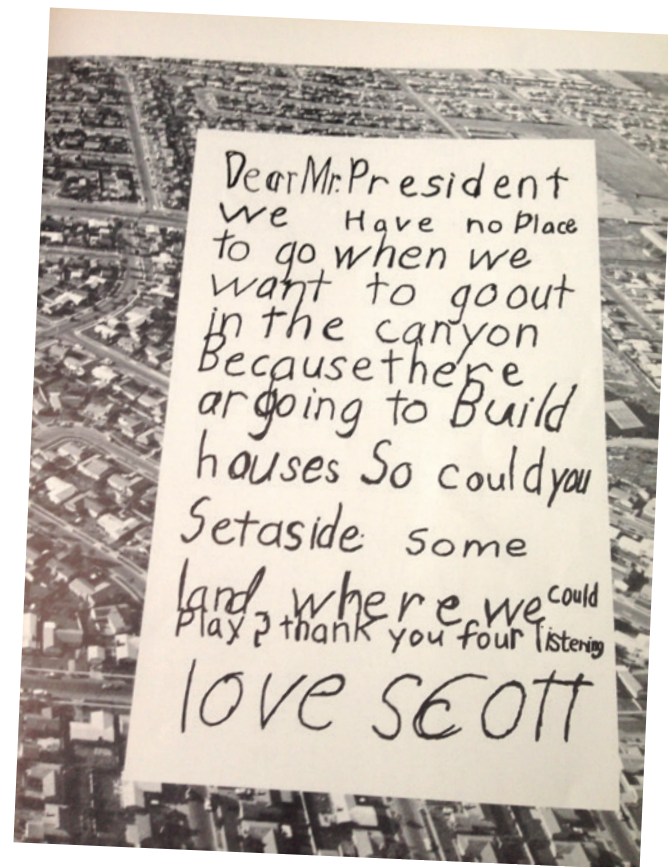 Dear Mr. President
We Have no Place
to go when we
want to go out
in the canyon
Because there
ar going to Build
houses So could you
Set aside some
land where we could
Play? thank you four listening
love SCOTT